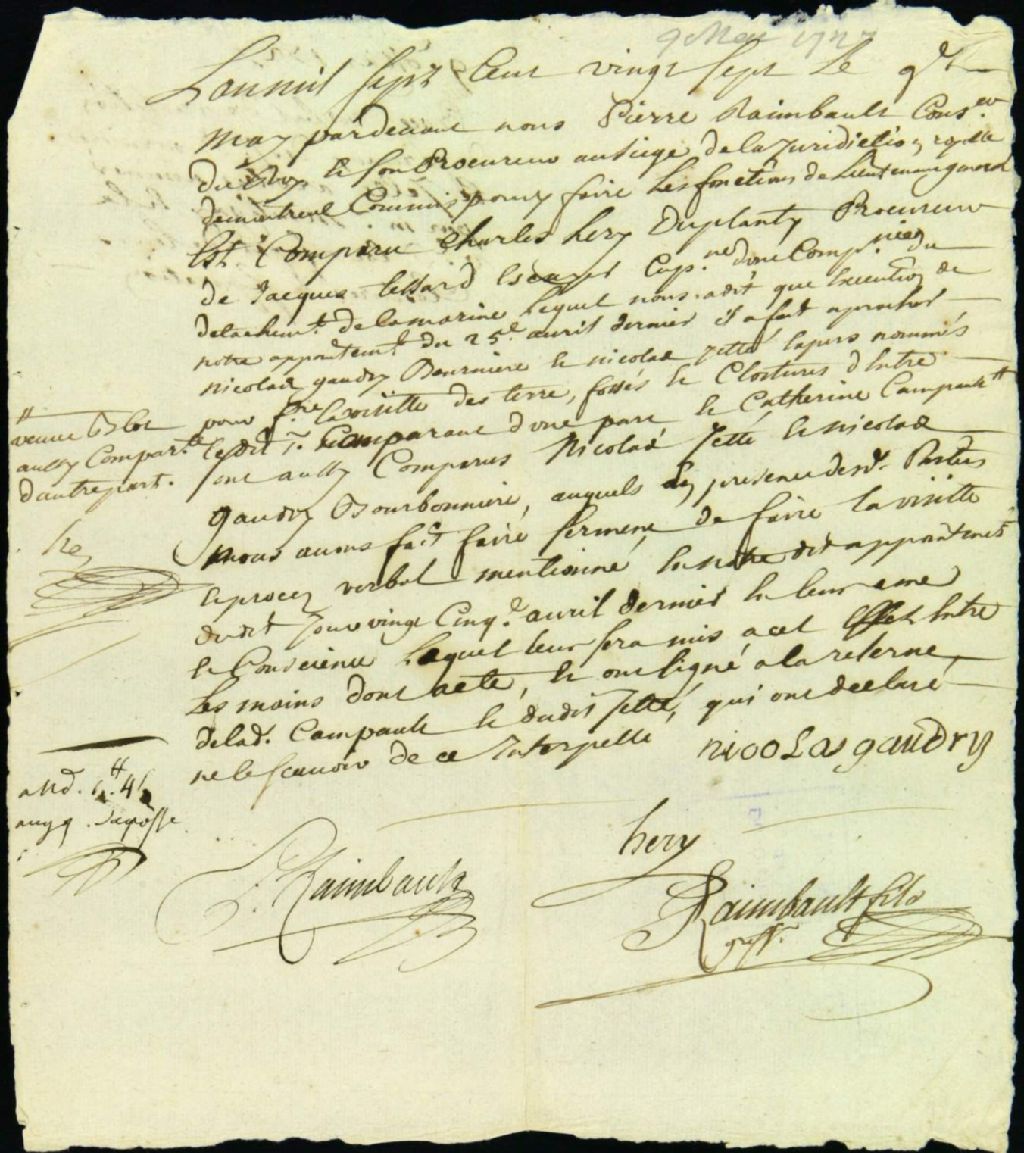 9 May 1727
Lanmil sept Cent vingt sept le 9e
May pardevant nous Pierre Raimbault Cons.er
du Roy le son Procureur au siege de la Juridiction royalle
de montreal Commis pour faire les fonctions de Lieutenant general
Est Comparu Charles hery Duplanty Procureur
de Jacques testard Escuyer Cap.ne d'une Comp.nie du
detachem.t de la marine lequel nous a dit que Execution de
notre appointem.t du 25.e avril dernier il a fait aprocher
nicolas gaudry Bourniere le nicolas Jetté Expers nommés
pour f.re la visitte des terre, fossés le Clostures d'Entre
le dit S.r Comparant d'une part le Catherine Campault
"
veuve
aussy Compar.te
d'autre part.
ont aussy Comparus Nicolas Jetté le nicolas
gaudry Bourbonniere, auquels En presence desd. Parties
nous avons fait faire serment de faire la visitte
le procez verbal mentionné En notre dit appointement
dudit Jour vingt Cinq.e avril dernier En leur ame
le Conscience lequel leur sera mis a cet Effet Entre
les mains dont acte, le ont signé a la reserve
de lad. Campault le dudit Jetté, qui ont declaré
ne le scavoir de ce Interpellé
nicolas gaudry
hery
P. Raimbault
Raimbault fils
greff.r